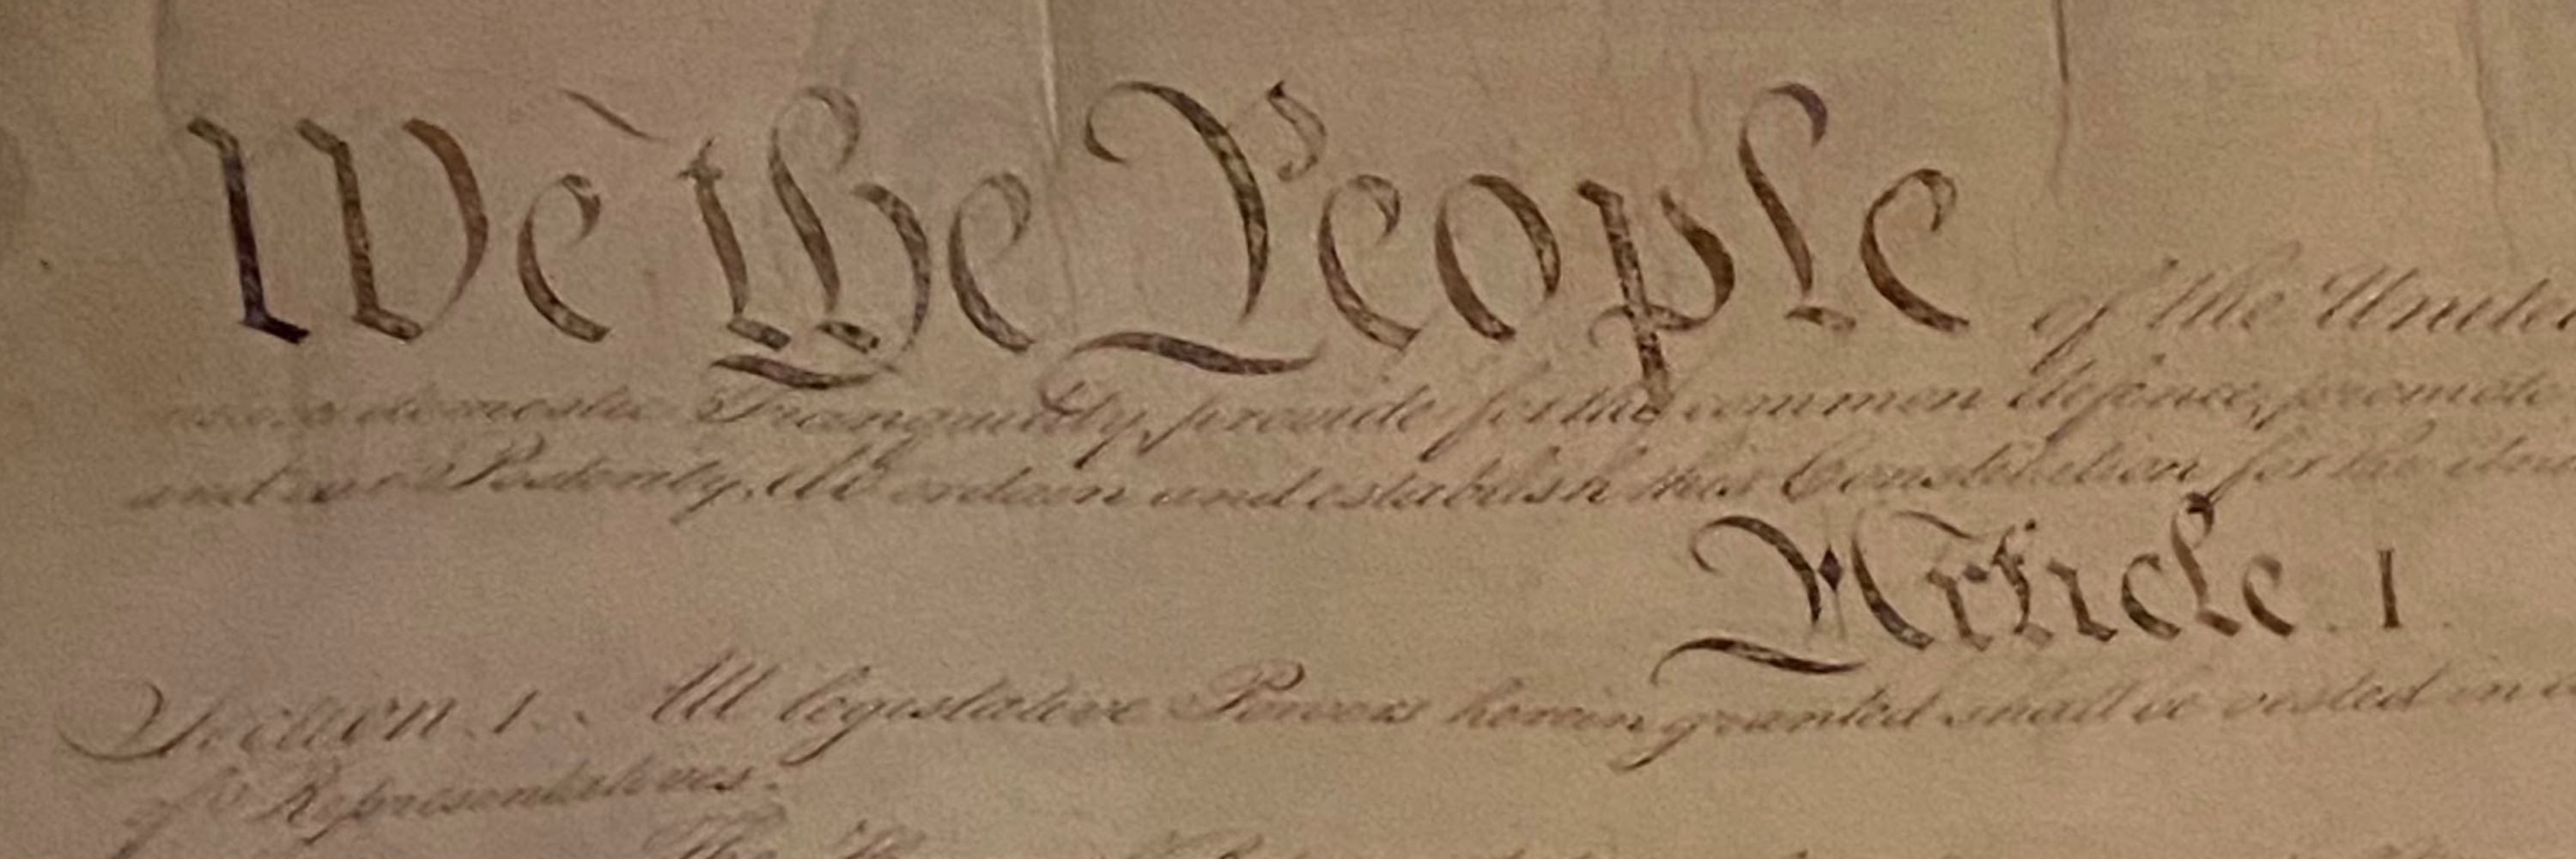 We the People of the Unite
insure domestic Tranquility, provide for the common defence, promote
and our Posterity, do ordain and establish this Constitution for the
Article. I.
Section. 1. All legislative Powers herein granted shall be vested in a
of Representatives.